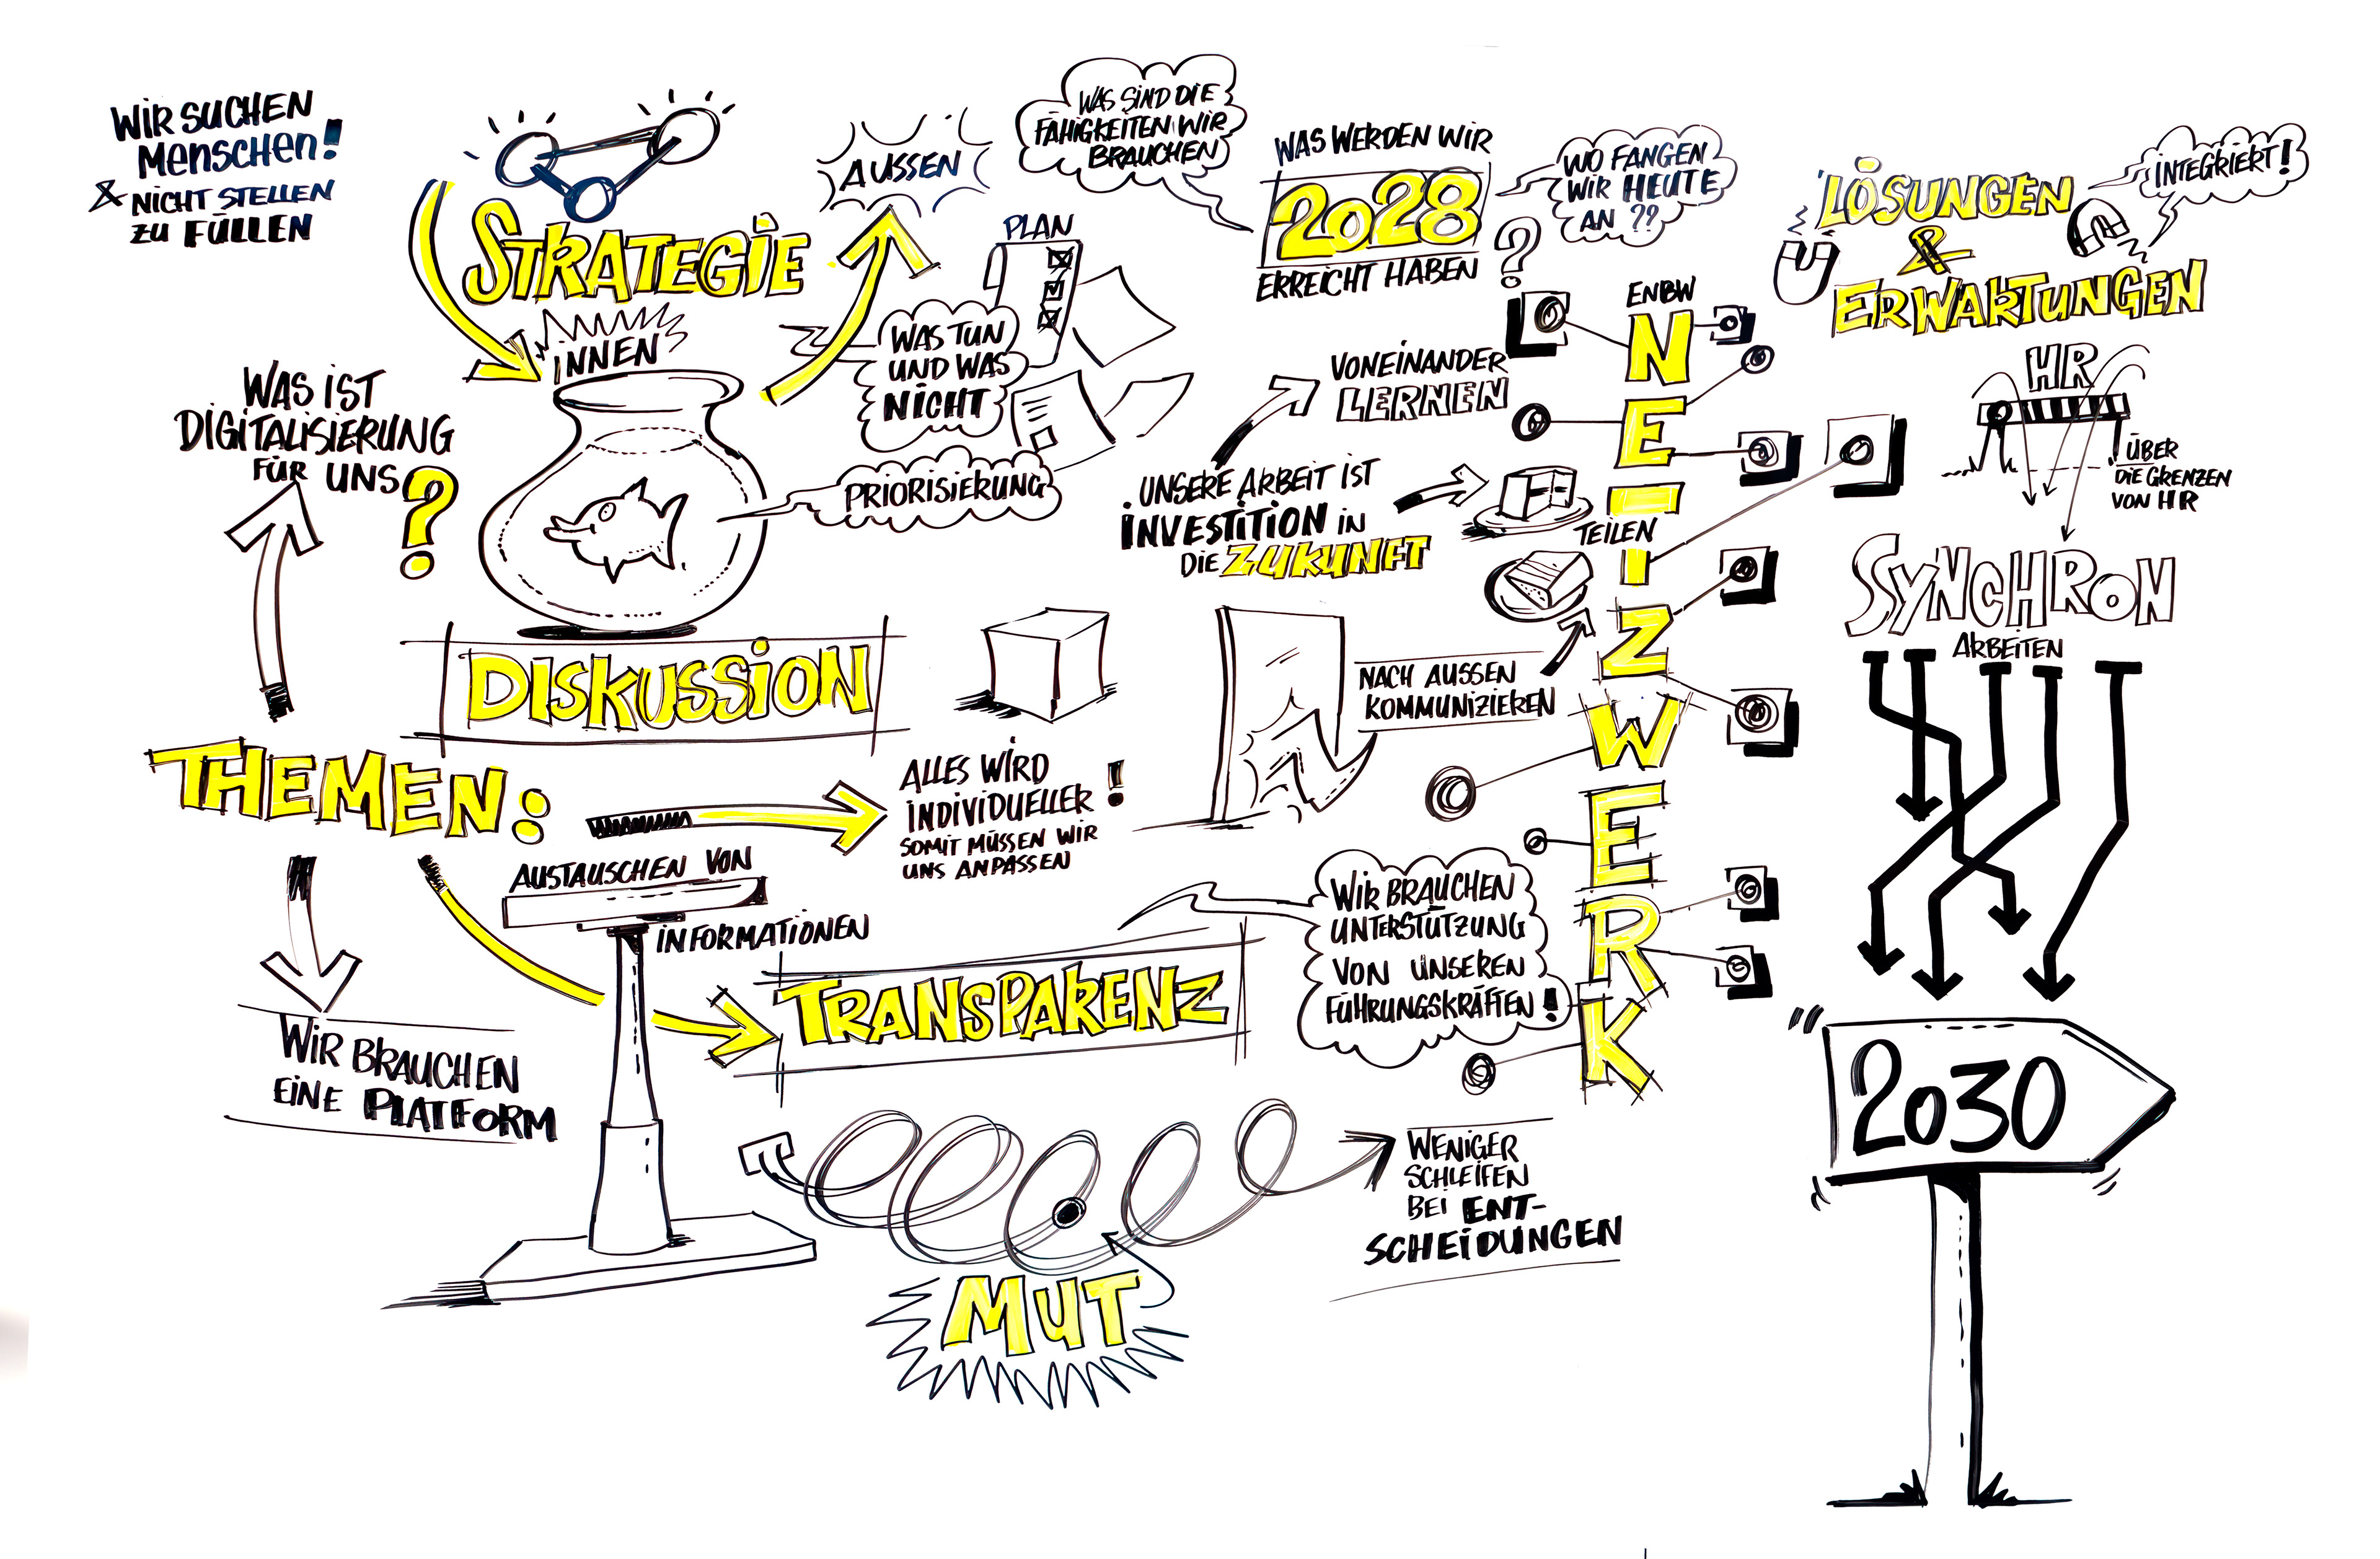 WIR SUCHEN
MENSCHEN!
& NICHT STELLEN
ZU FÜLLEN
STRATEGIE
INNEN
AUSSEN
WAS IST
DIGITALISIERUNG
FÜR UNS
?
PLAN
WAS TUN
UND WAS
NICHT
PRIORISIERUNG
DISKUSSION
WAS SIND DIE
FÄHIGKEITEN WIR
BRAUCHEN
WAS WERDEN WIR
2028
ERREICHT HABEN
WO FANGEN
WIR HEUTE
AN ??
?
VONEINANDER
LERNEN
UNSERE ARBEIT IST
INVESTITION IN
DIE ZUKUNFT
TEILEN
NACH AUSSEN
KOMMUNIZIEREN
ENBW
N
E
T
Z
W
E
R
K
LÖSUNGEN
&
ERWARTUNGEN
INTEGRIERT!
HR
ÜBER
DIE GRENZEN
VON HR
SYNCHRON
ARBEITEN
2030
THEMEN:
ALLES WIRD
INDIVIDUELLER!
SOMIT MÜSSEN WIR
UNS ANPASSEN
AUSTAUSCHEN VON
INFORMATIONEN
TRANSPARENZ
WIR BRAUCHEN
UNTERSTÜTZUNG
VON UNSEREN
FÜHRUNGSKRÄFTEN!
WIR BRAUCHEN
EINE PLATFORM
MUT
WENIGER
SCHLEIFEN
BEI ENT-
SCHEIDUNGEN